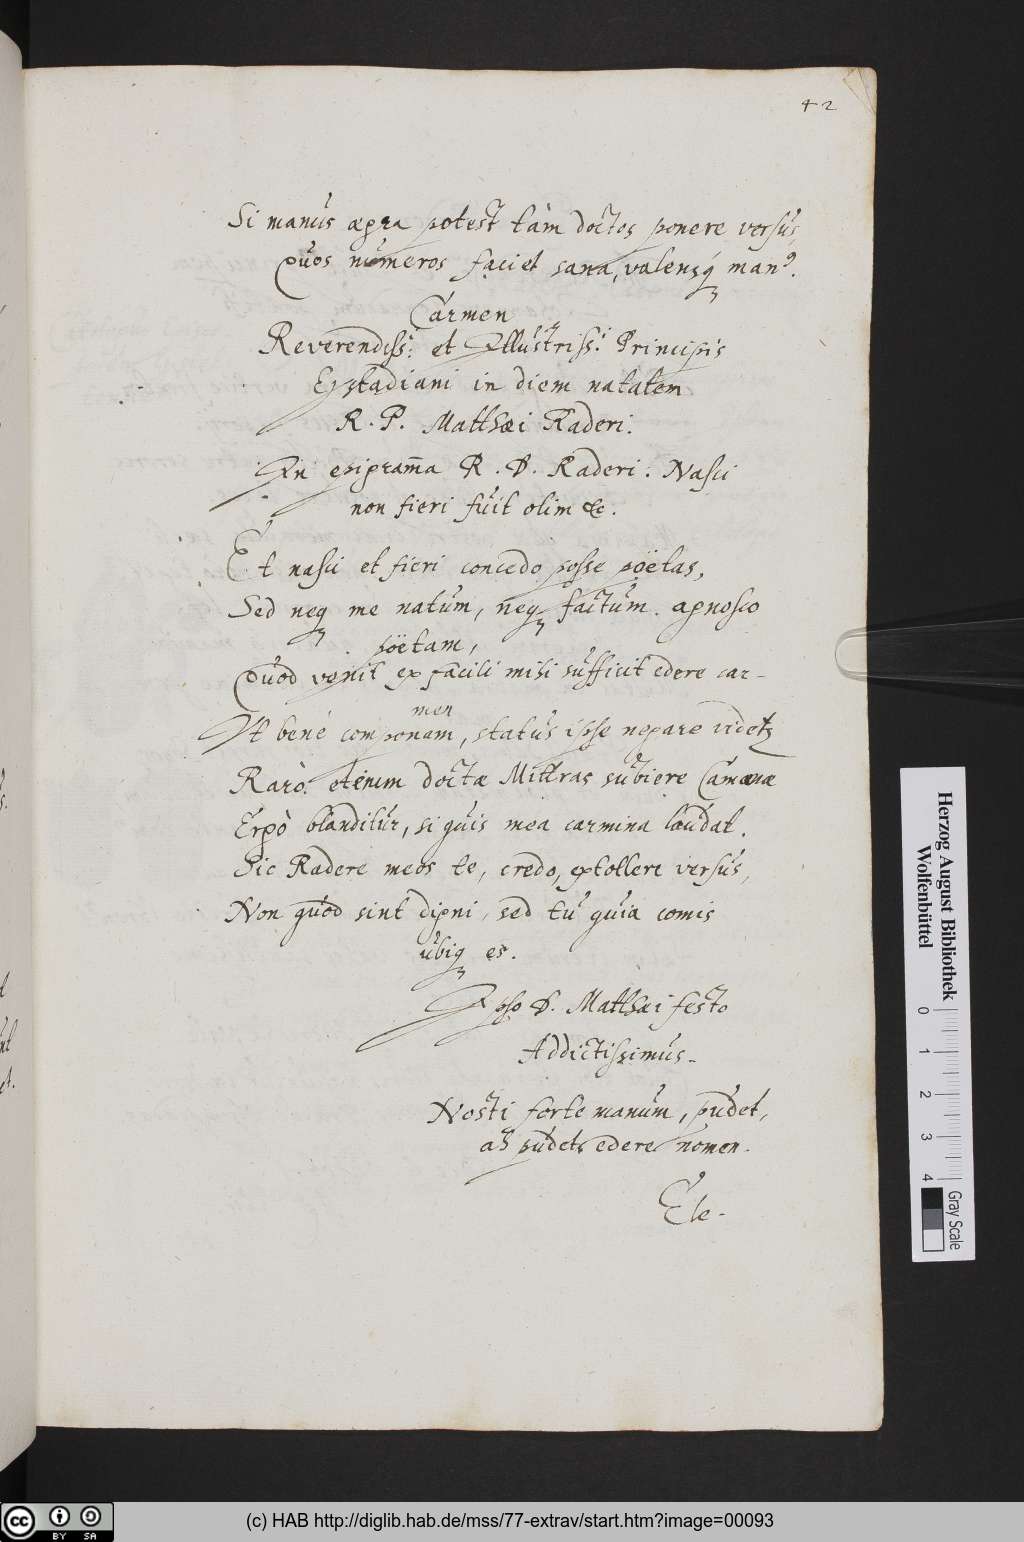 42
Si manus ægra potest tàm doctos ponere versus,
Quos numeros faciet sana, valensq́ manꝰ.
Carmen
Reverendiss: et Illustriss: Principis
Eystadiani in diem natalem
R. P. Matthæi Raderi.
In epigram̄a R. P. Raderi: Nasci
non fieri fuit olim &c.
Et nasci et fieri concedo posse poëtas,
Sed neq me natum, neq factum agnosco
poëtam,
Quod venit ex facili mihi sufficit edere car-
men
Ut benè componam, status ipse negare videtꝛ
Raro: etenim doctæ Mithras subiere Camænæ
Ergò blanditur, si quis mea carmina laudat.
Sic Radere meos te, credo, extollere versus,
Non quod sint digni, sed tu quia comis
ubiq es.
Ipso D. Matthæi festo
Addictissimus.
Nosti forte manum, pudet,
ah pudet edere nomen.
Ele.
Herzog August Bibliothek
Wolfenbüttel
0 1 2 3 4
Gray Scale
cc BY SA
(c) HAB http://diglib.hab.de/mss/77-extrav/start.htm?image=00093